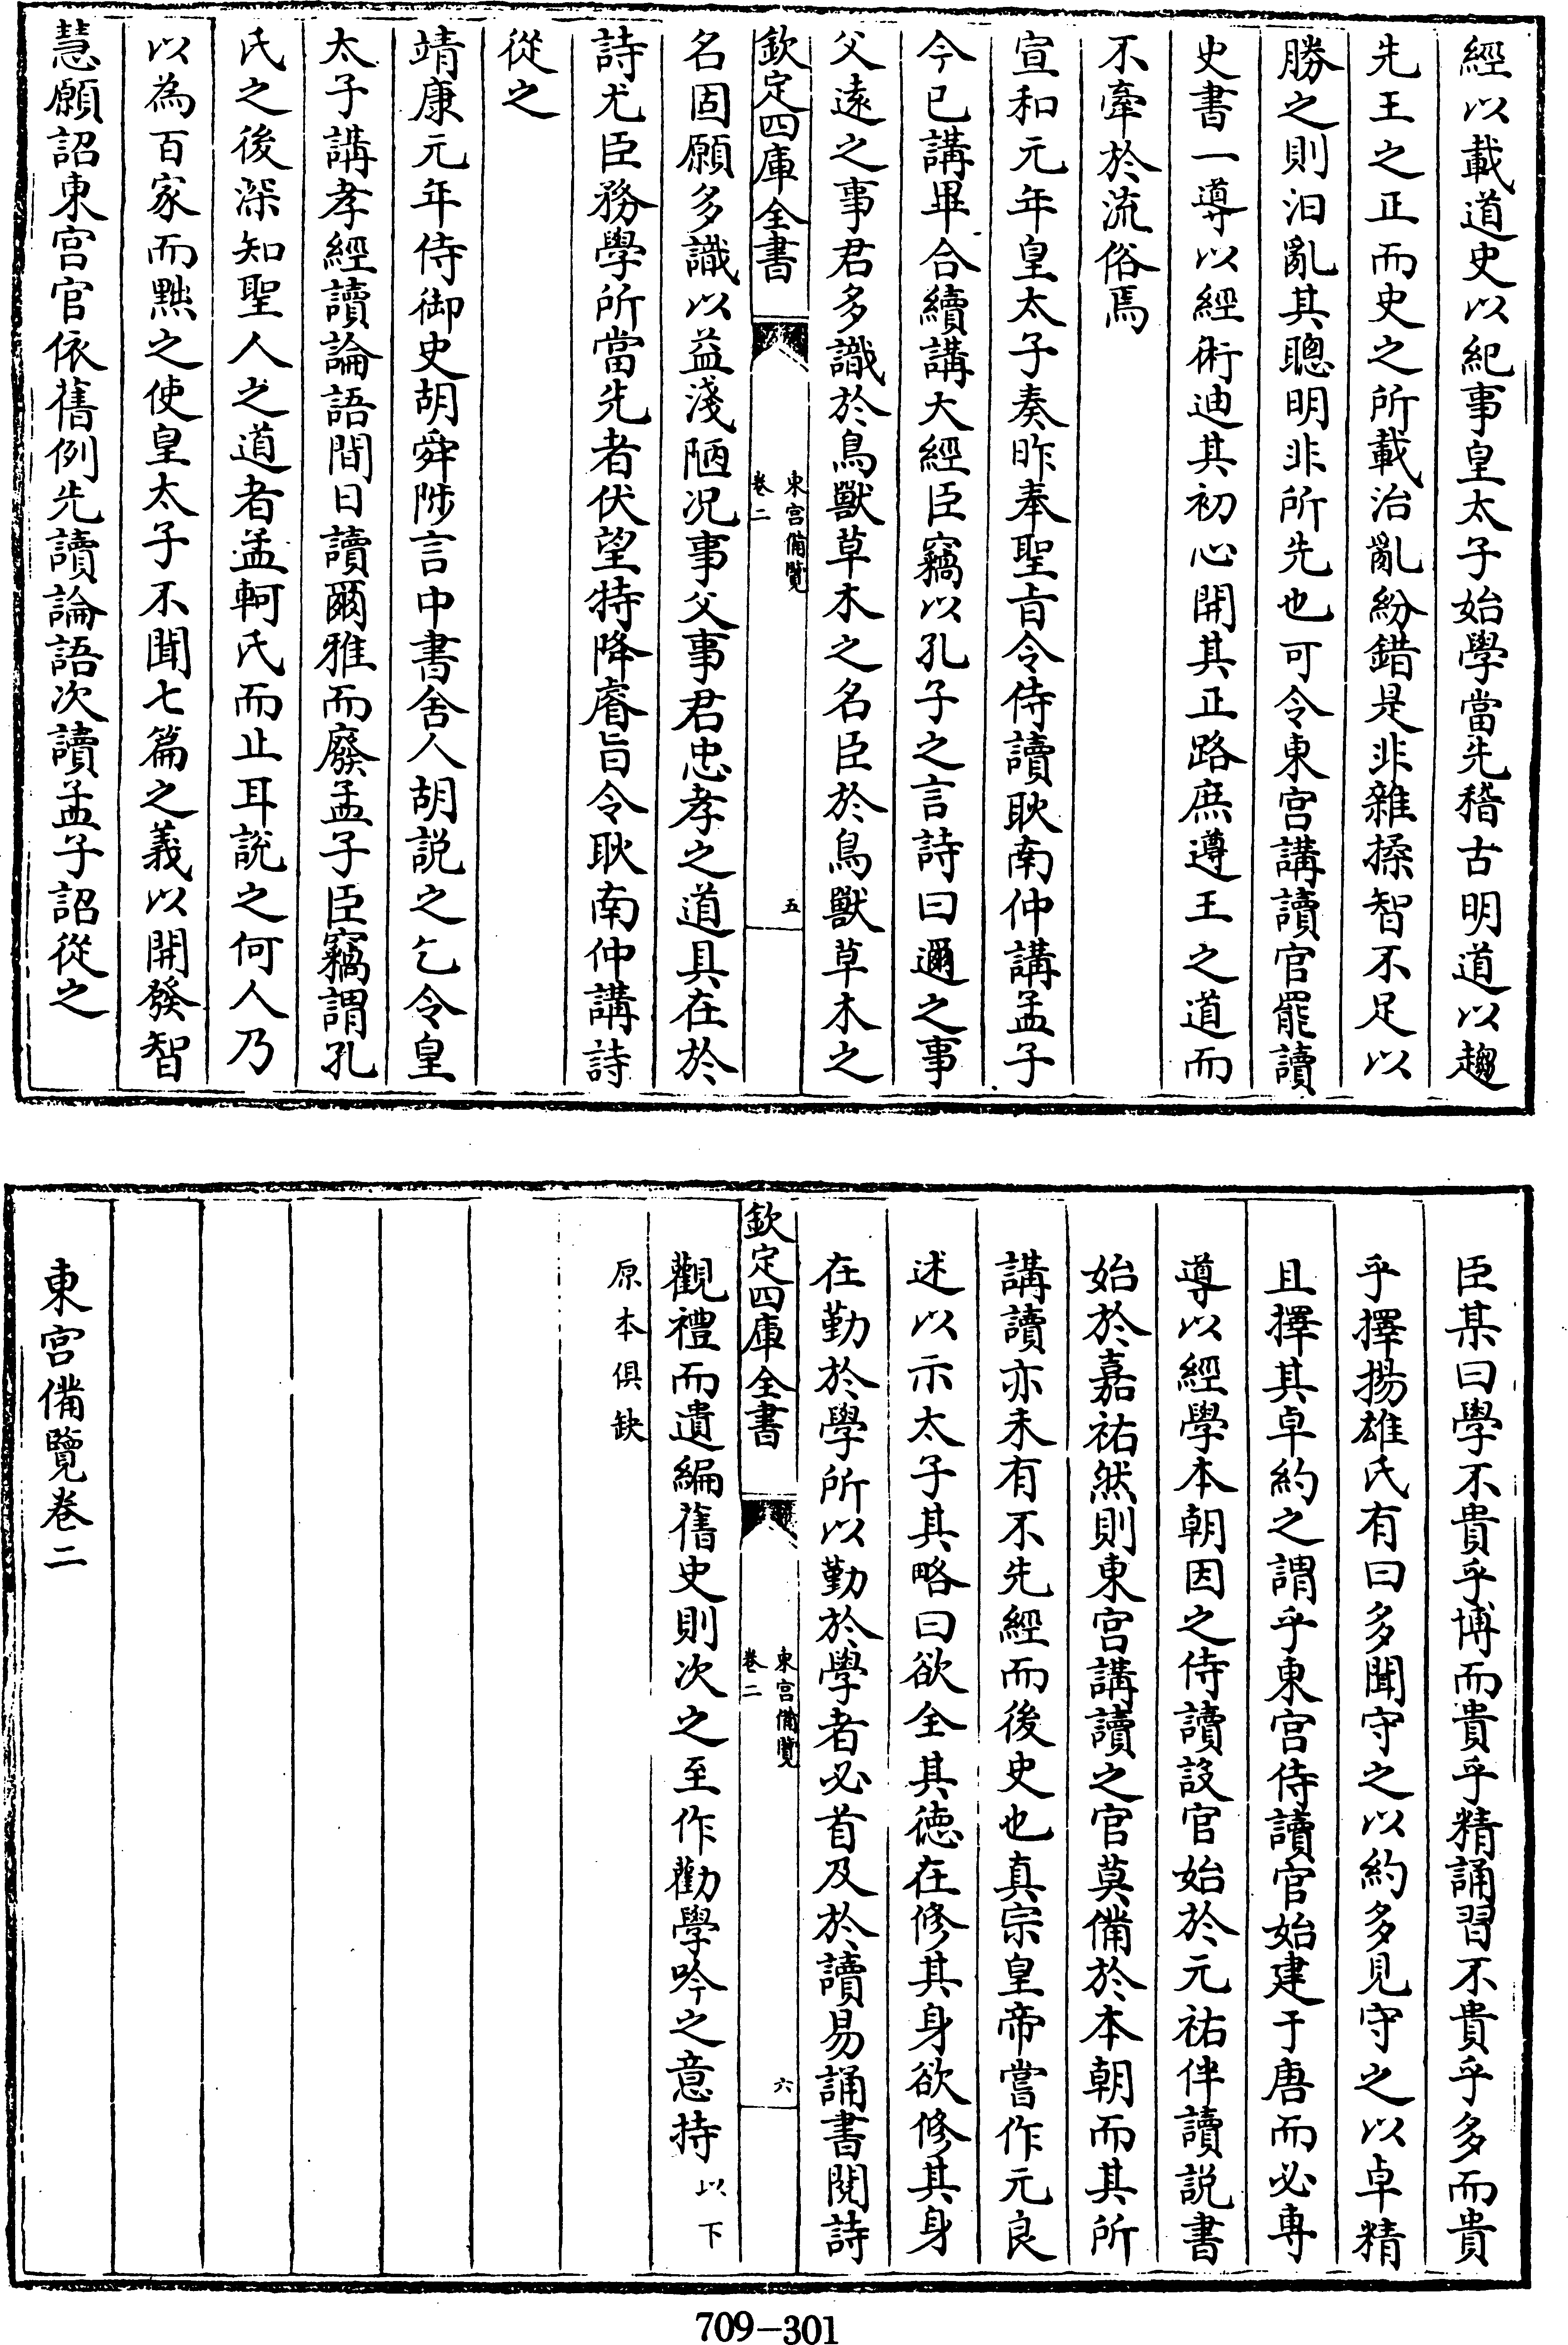 經以載道史以紀事皇太子始學當先稽古明道以趨
先王之正而史之所載治亂紛錯是非雜揉智不足以
勝之則汩亂其聰明非所先也可令東宫講讀官罷讀
史書一導以經術迪其初心開其正路庶遵王之道而
不牽於流俗焉
宣和元年皇太子奏昨奉聖旨令侍讀耿南仲講孟子
今已講畢合續講大經臣竊以孔子之言詩曰邇之事
父遠之事君多識於鳥獸草木之名臣於鳥獸草木之
欽定四庫全書
東宫備覽
卷二
五
名固願多識以益淺陋况事父事君忠孝之道具在於
詩尤臣務學所當先者伏望特降睿旨令耿南仲講詩
從之
靖康元年侍御史胡舜陟言中書舍人胡説之乞令皇
太子講孝經讀論語間日讀爾雅而廢孟子臣竊謂孔
氏之後深知聖人之道者孟軻氏而止耳説之何人乃
以為百家而黜之使皇太子不聞七篇之義以開發智
慧願詔東宫官依舊例先讀論語次讀孟子詔從之
臣某曰學不貴乎博而貴乎精誦習不貴乎多而貴
乎擇揚雄氏有曰多聞守之以約多見守之以卓精
且擇其卓約之謂乎東宫侍讀官始建于唐而必專
導以經學本朝因之侍讀設官始於元祐伴讀説書
始於嘉祐然則東宫講讀之官莫備於本朝而其所
講讀亦未有不先經而後史也真宗皇帝嘗作元良
述以示太子其略曰欲全其徳在修其身欲修其身
在勤於學所以勤於學者必首及於讀易誦書閱詩
欽定四庫全書
東宫備覽
卷二
六
觀禮而遺編舊史則次之至作勸學吟之意持以下
原本俱缺
東宫備覽卷二
709-301